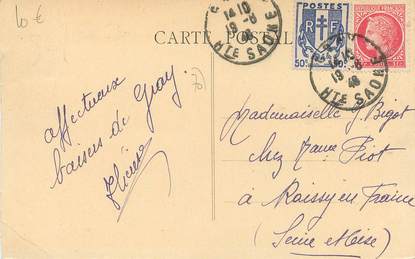 10 €
CARTE POSTALE
POSTES
RF
50c
14 10
19-6
46
HTE SAONE
14 10
19-6
46
HTE SAONE
70
affectueux
baisers de Gray.
Mademoiselle J. Bigot
chez Mame Piot
à Roissy en France
(Seine et Oise)